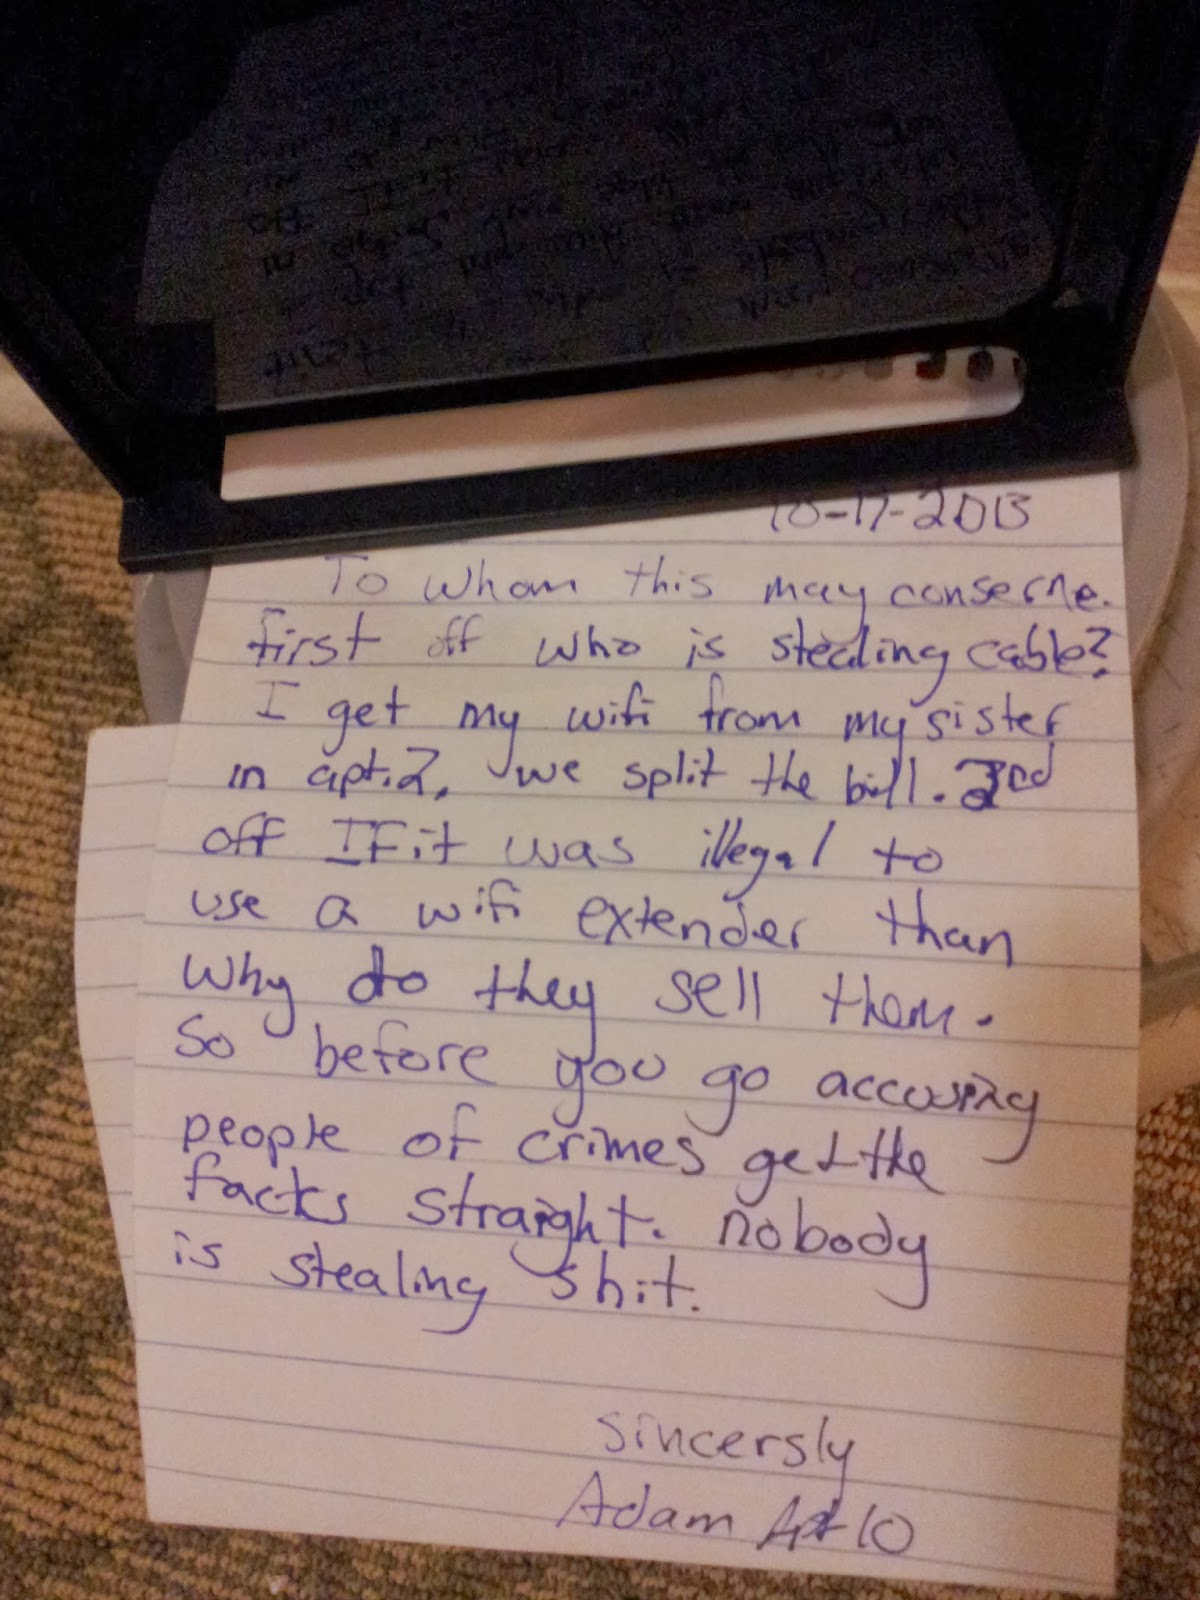 10-17-2013
To whom this may conserne.
first off who is stealing cable?
I get my wifi from my sister
in apt.2, we split the bill. 2nd
off IF it was illegal to
use a wifi extender than
why do they sell them.
So before you go accusing
people of crimes get the
facks straight. nobody
is stealing shit.
Sincersly
Adam Apt 10